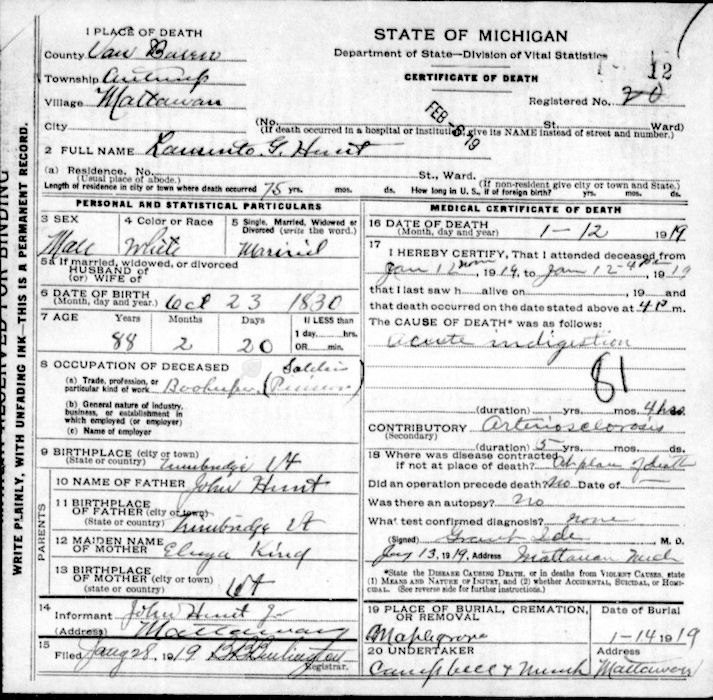 WRITE PLAINLY, WITH UNFADING INK—THIS IS A PERMANENT RECORD.
RESERVED FOR BINDING
STATE OF MICHIGAN
Department of State—Division of Vital Statistics
CERTIFICATE OF DEATH
12
Registered No. 20
FEB -8 19
1 PLACE OF DEATH
County Van Buren
Township Antwerp
Village Mattawan
City (No. St. Ward)
(If death occurred in a hospital or institution, give its NAME instead of street and number.)
2 FULL NAME G. Hunt
(a) Residence. No. St., Ward.
(Usual place of abode.) (If non-resident give city or town and State.)
Length of residence in city or town where death occurred 75 yrs. mos. ds. How long in U. S., if of foreign birth? yrs. mos. ds.
PERSONAL AND STATISTICAL PARTICULARS
3 SEX
Male
4 Color or Race
White
5 Single, Married, Widowed or Divorced (write the word.)
Married
5a If married, widowed, or divorced
HUSBAND of
(or) WIFE of
6 DATE OF BIRTH
(Month, day and year) Oct 23 1830
7 AGE Years Months Days If LESS than
88 2 20
1 day,....hrs.
OR.....min.
8 OCCUPATION OF DECEASED
(a) Trade, profession, or particular kind of work
(b) General nature of industry, business, or establishment in which employed (or employer)
(c) Name of employer
9 BIRTHPLACE (city or town)
(State or country) Tunbridge Vt
10 NAME OF FATHER John Hunt
PARENTS
11 BIRTHPLACE OF FATHER (city or town)
(State or country) Tunbridge Vt
12 MAIDEN NAME OF MOTHER King
13 BIRTHPLACE OF MOTHER (city or town)
(State or country) Vt
14
Informant John Hunt Jr
(Address) Mattawan
15
Filed 28, 1919
Registrar.
MEDICAL CERTIFICATE OF DEATH
16 DATE OF DEATH
(Month, day and year) 1-12 1919
17
I HEREBY CERTIFY, That I attended deceased from
Jan 12 noon, 1919, to Jan 12-4 pm, 1919
that I last saw h....alive on, 19....and
that death occurred on the date stated above at 4P m.
The CAUSE OF DEATH* was as follows:
acute indigestion
81
(duration) yrs. mos. 4 hrs
CONTRIBUTORY Arteriosclorosis
(Secondary)
(duration) 5 yrs. mos. ds.
18 Where was disease contracted
if not at place of death? At place of death
Did an operation precede death? No Date of —
Was there an autopsy? no
What test confirmed diagnosis? none
(Signed) Grant Ide M. D.
Jan 13, 1919, Address Mattawan Mich
*State the DISEASE CAUSING DEATH, or in deaths from VIOLENT CAUSES, state (1) MEANS AND NATURE OF INJURY, and (2) whether ACCIDENTAL, SUICIDAL, or HOMICIDAL. (See reverse side for further instructions.)
19 PLACE OF BURIAL, CREMATION, OR REMOVAL
Maplegrove
Date of Burial
1-14 1919
20 UNDERTAKER
Campbell &
Address
Mattawan